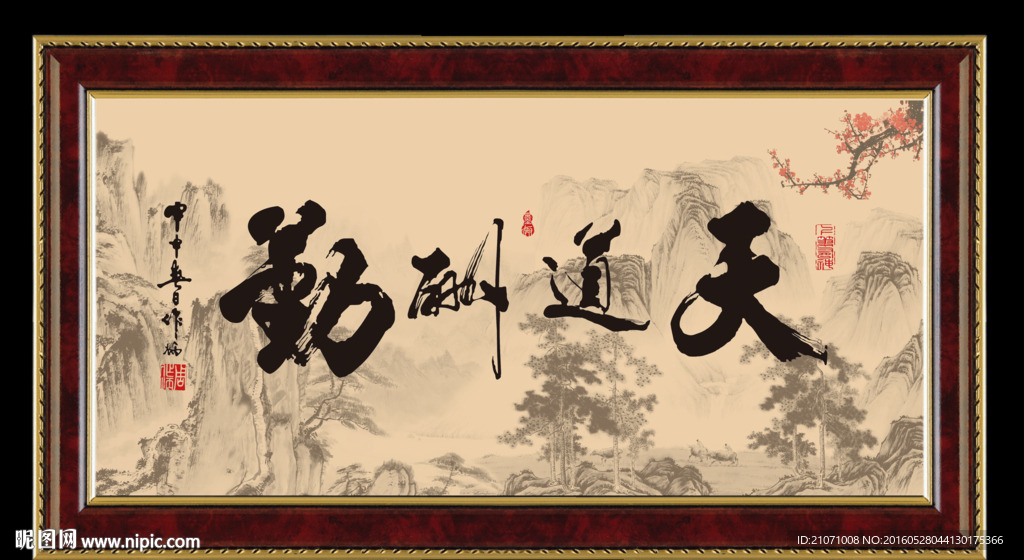 天道酬勤
甲申春日作
昵图网 www.nipic.com
ID:21071008 NO:20160528044130175366